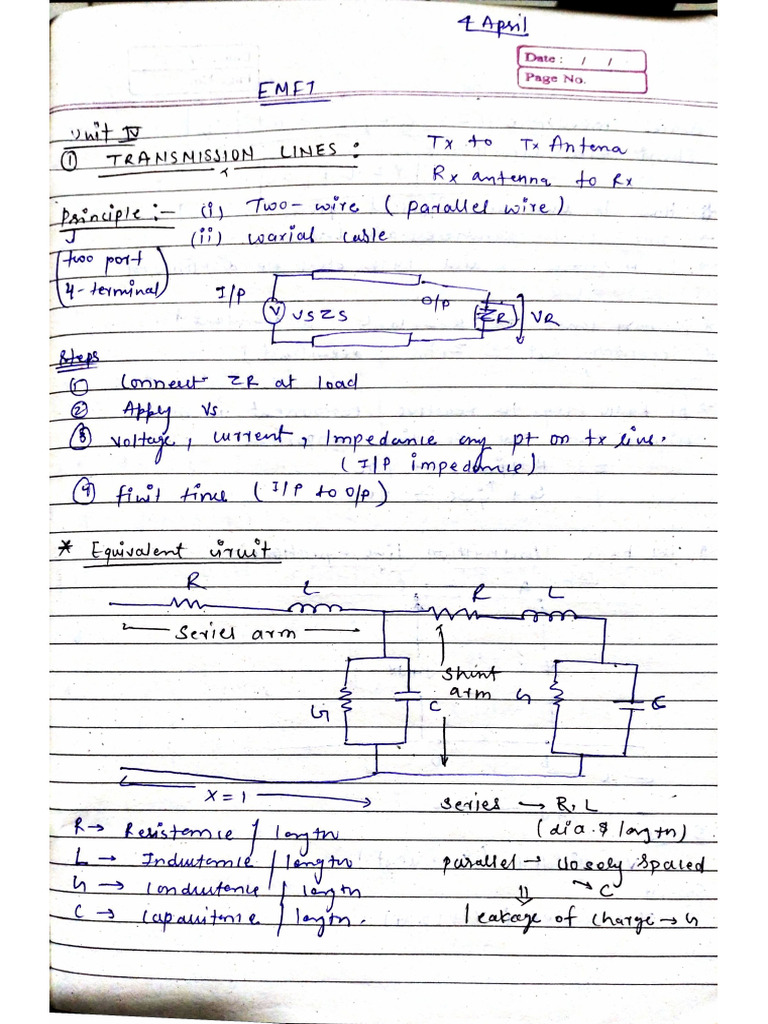 4 April
Date : / /
Page No.
EMFT
Unit IV
① TRANSMISSION LINES : Tx to Tx Antena
Rx antenna to Rx
Principle :- (i) Two-wire (parallel wire)
(ii) coaxial cable
(two port
4-terminal)
I/P V VS ZS O/P ZR VR
Steps
① Connect ZR at load
② Apply Vs
③ Voltage, current, Impedance any pt on tx line.
(I/P impedance)
④ finit time (I/P to O/P)
* Equivalent circuit
R L R L
← series arm →
Shunt
arm
G C G C
← X = 1 →
series → R, L
R → Resistance / length (dia. & length)
L → Inductance / length parallel → closely spaced
G → Conductance / length → C
C → Capacitance / length. ⇓
leakage of charge → G